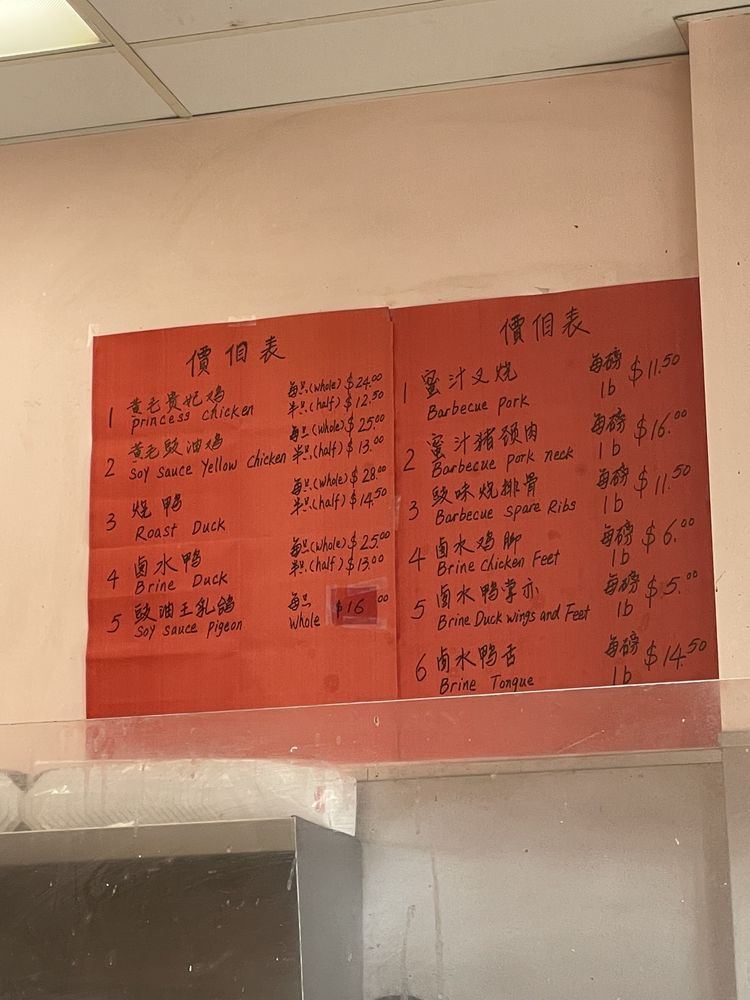 價伯表
1 黄毛贵妃鸡 每只(whole) $24.00
princess chicken 半只(half) $12.50
2 黄毛豉油鸡 每只(whole) $25.00
Soy sauce Yellow Chicken 半只(half) $13.00
3 烧鸭 每只(whole) $28.00
Roast Duck 半只(half) $14.50
4 卤水鸭 每只(whole) $25.00
Brine Duck 半只(half) $13.00
5 豉油王乳鸽 每只
Soy sauce pigeon whole $16.00
價伯表
1 蜜汁叉烧 每磅 $11.50
Barbecue pork 1b
2 蜜汁猪颈肉 每磅 $16.00
Barbecue pork neck 1b
3 豉味烧排骨 每磅 $11.50
Barbecue spare Ribs 1b
4 卤水鸡脚 每磅 $6.00
Brine Chicken Feet 1b
5 卤水鸭掌亦 每磅 $5.00
Brine Duck wings and Feet 1b
6 卤水鸭舌 每磅 $14.50
Brine Tongue 1b